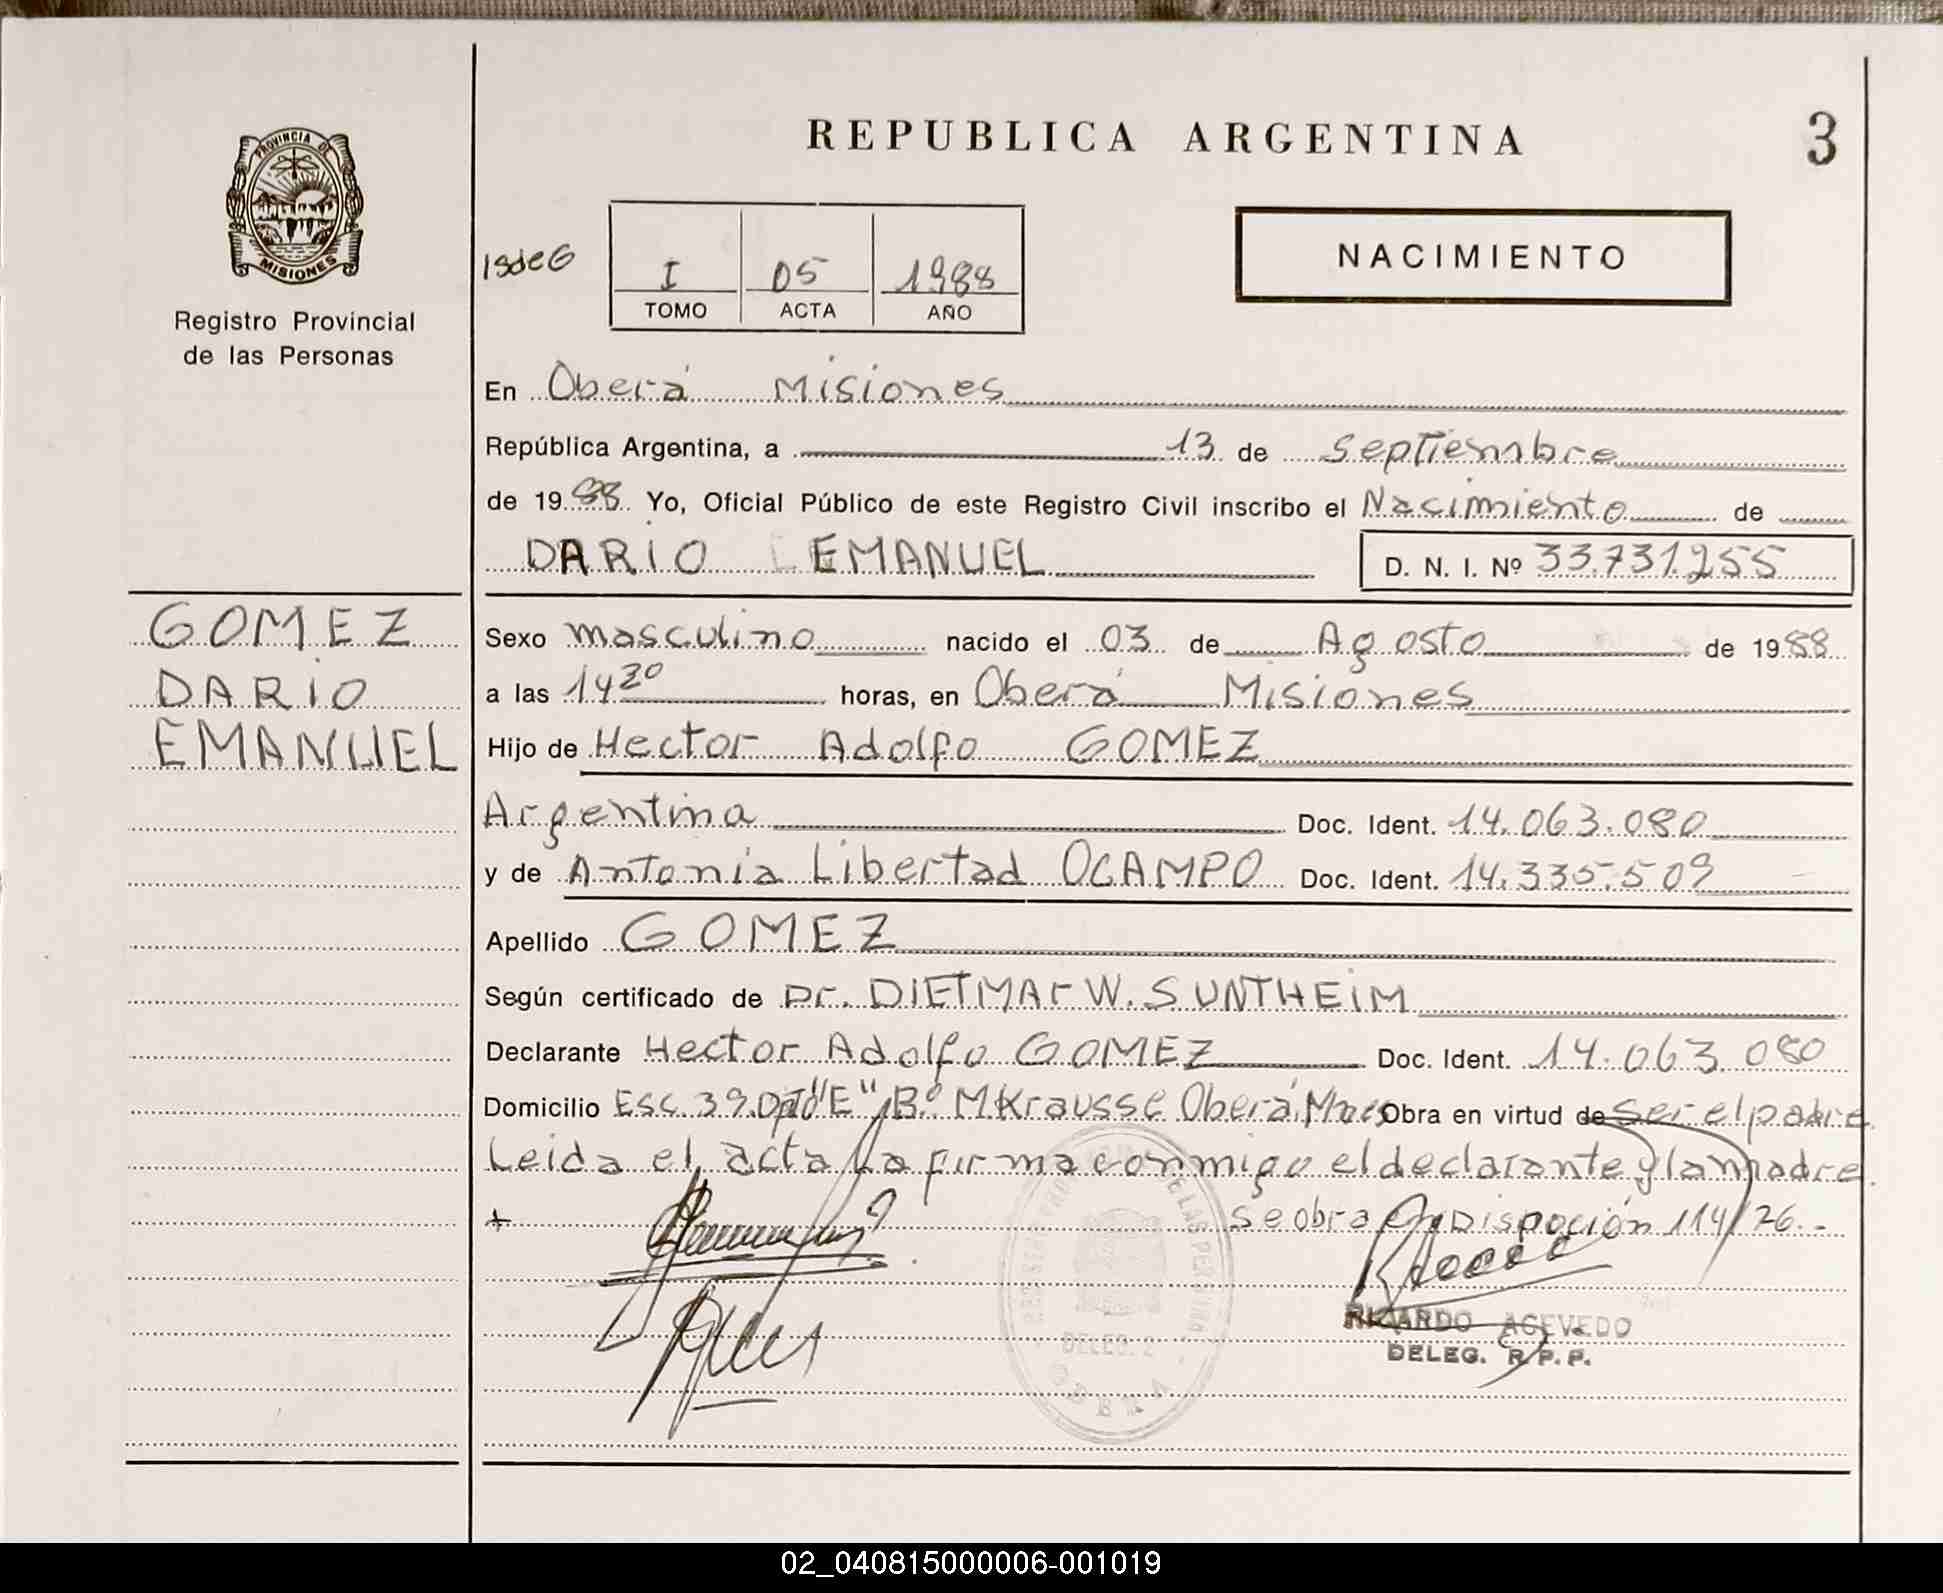 REPUBLICA ARGENTINA
3
PROVINCIA DE
MISIONES
Registro Provincial
de las Personas
NACIMIENTO
I 05 1988
TOMO ACTA AÑO
En Oberá Misiones
República Argentina, a 13 de septiembre
de 1988 Yo, Oficial Público de este Registro Civil inscribo el Nacimiento de
DARIO EMANUEL D. N. I. Nº 33.731.255
GOMEZ
DARIO
EMANUEL
Sexo masculino nacido el 03 de Agosto de 1988
a las 14 horas, en Oberá Misiones
Hijo de Hector Adolfo GOMEZ
Argentina Doc. Ident. 14.063.080
y de Antonia Libertad OCAMPO Doc. Ident. 14.335.509
Apellido GOMEZ
Según certificado de Dr. DIETMAR W. SUNTHEIM
Declarante Hector Adolfo GOMEZ Doc. Ident. 14.063.080
Domicilio Esc. 39 Dpto "E" Bº M Krausse Oberá Mnes Obra en virtud de ser el padre
Leida el acta la firma conmigo el declarante y la madre.
+ se obra Disposción 114/76.-
RICARDO ACEVEDO
DELEG. R. P. P.
DELEG. 2
OBERA
02_040815000006-001019